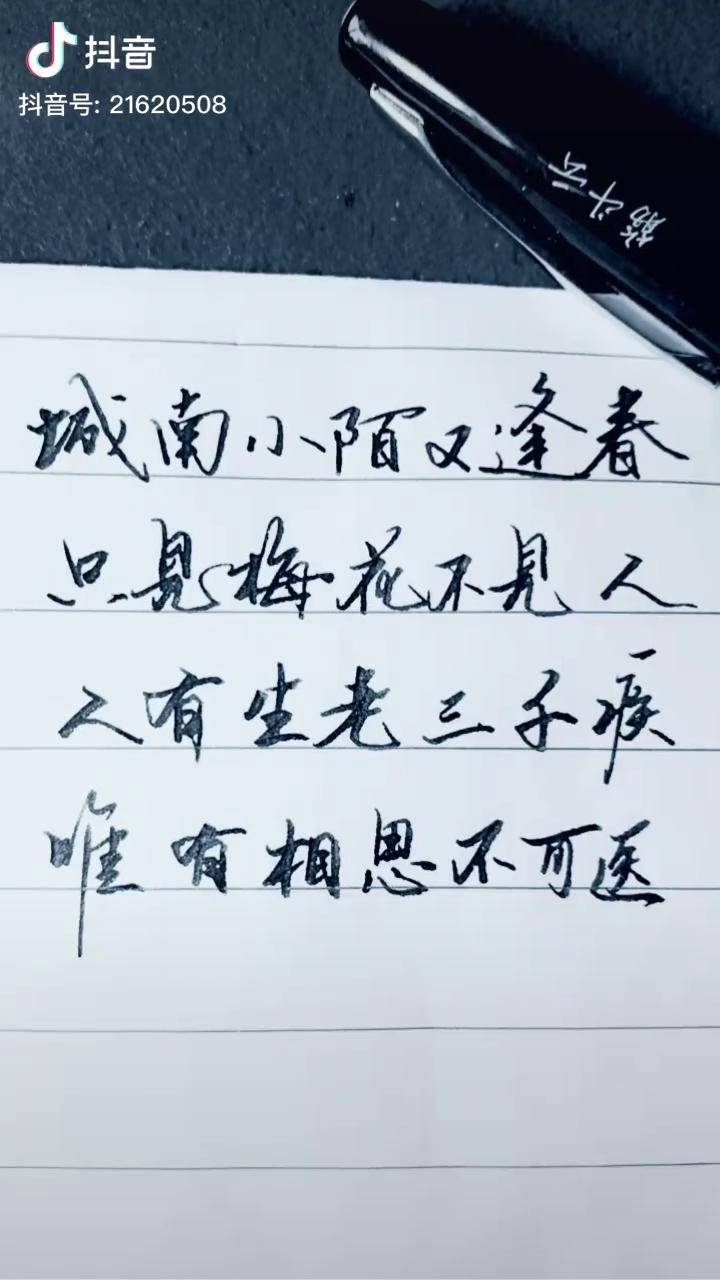 抖音
抖音号: 21620508
筋斗云
城南小陌又逢春
只见梅花不见人
人有生老三千疾
唯有相思不可医